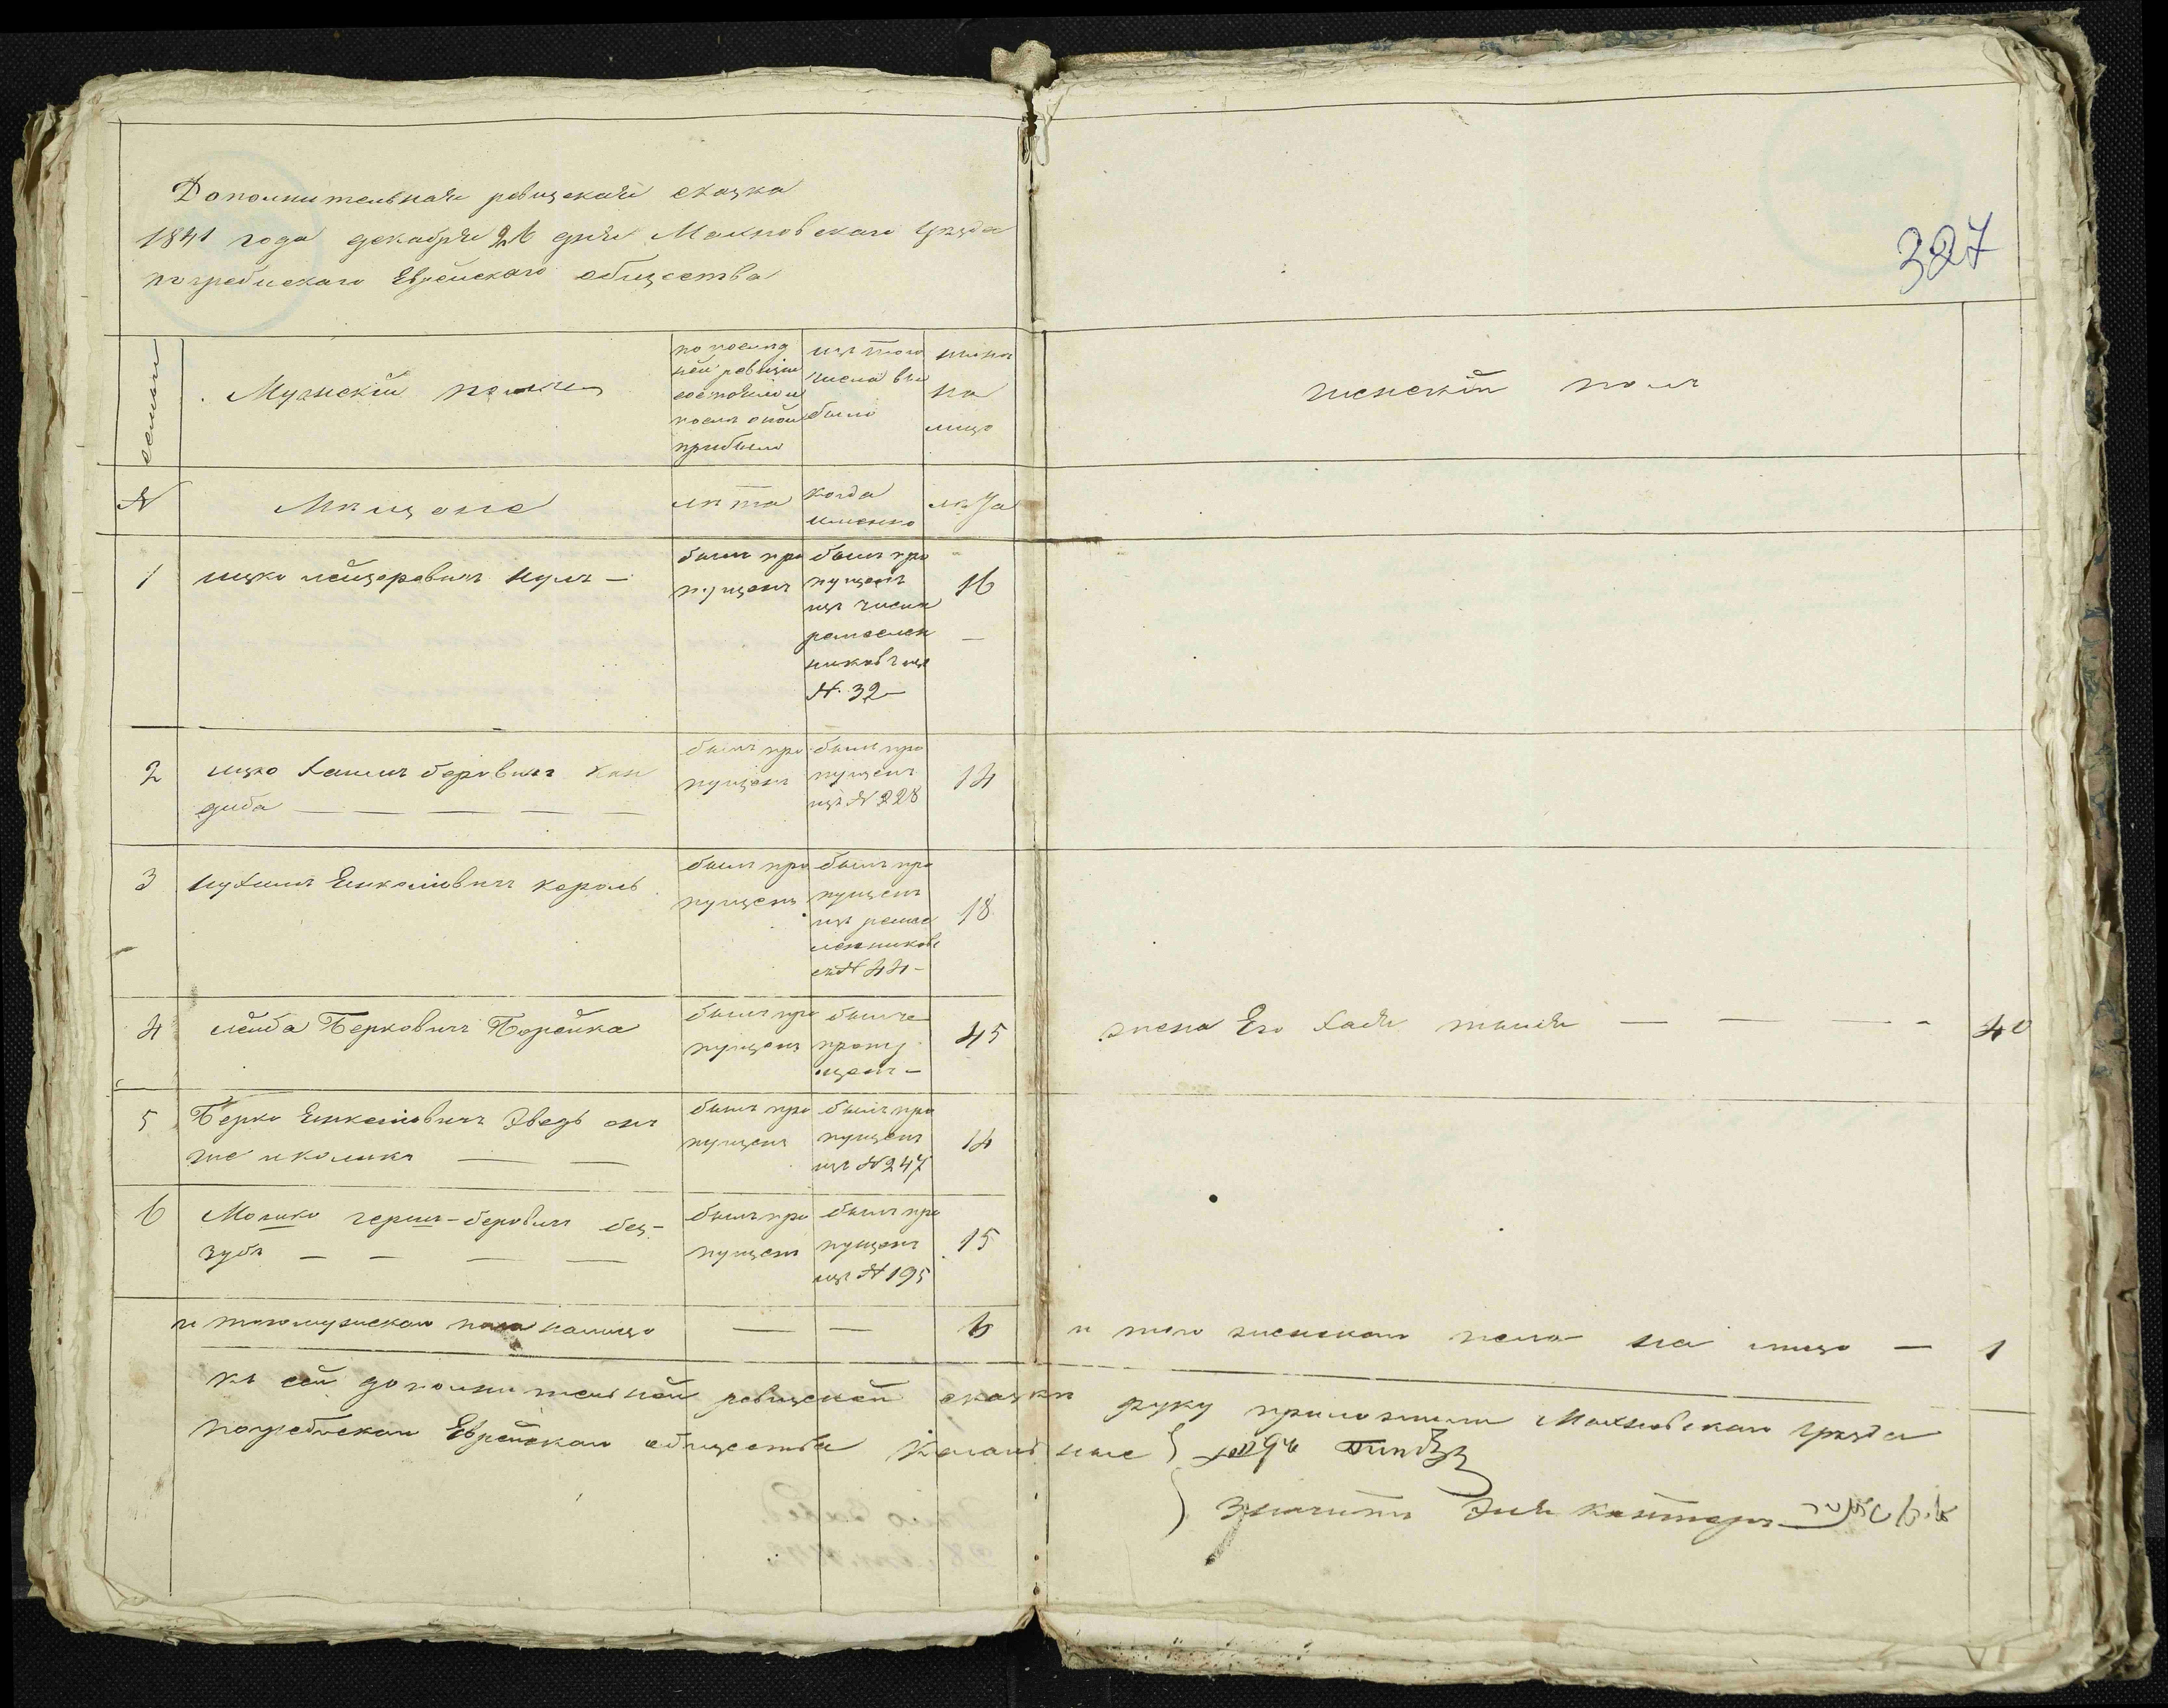 Дополнительная ревизская сказка
1841 года декабря 26 дня Махновскаго уезда
погребискаго Еврейскаго общества
327
семьи
Мужский пол
по послед
ней ревизии
состояло и
после оной
прибыло
из того
числа вы
было
ныне
на
лицо
женский пол
№
Мещане
лета
когда
именно
лета
1
ицко лейзерович
был про
пущен
был про
пущен
из числа
ремеслен
ников из
№ 32
16
2
ицко хаим берович кан
дыба
был про
пущен
был про
пущен
из № 228
14
3
нухим Енкелиович король
был про
пущен
был про
пущен
из ремес
ленников
№ 44
18
4
лейба Беркович Борейка
был про
пущен
был
пропу
щен
45
жена Его хая
40
5
Берко Енкелиович
же
был про
пущен
был про
пущен
из № 247
14
6
Мошко герш-берович без-
зуб
был про
пущен
был про
пущен
из № 195
15
и того мужскаго пола налицо
6
и того женскаго пола на лицо
1
к сей дополнительной ревизской сказки руку приложили Махновскаго уезда
погребискаго Еврейскаго общества кагальные
значит кантор